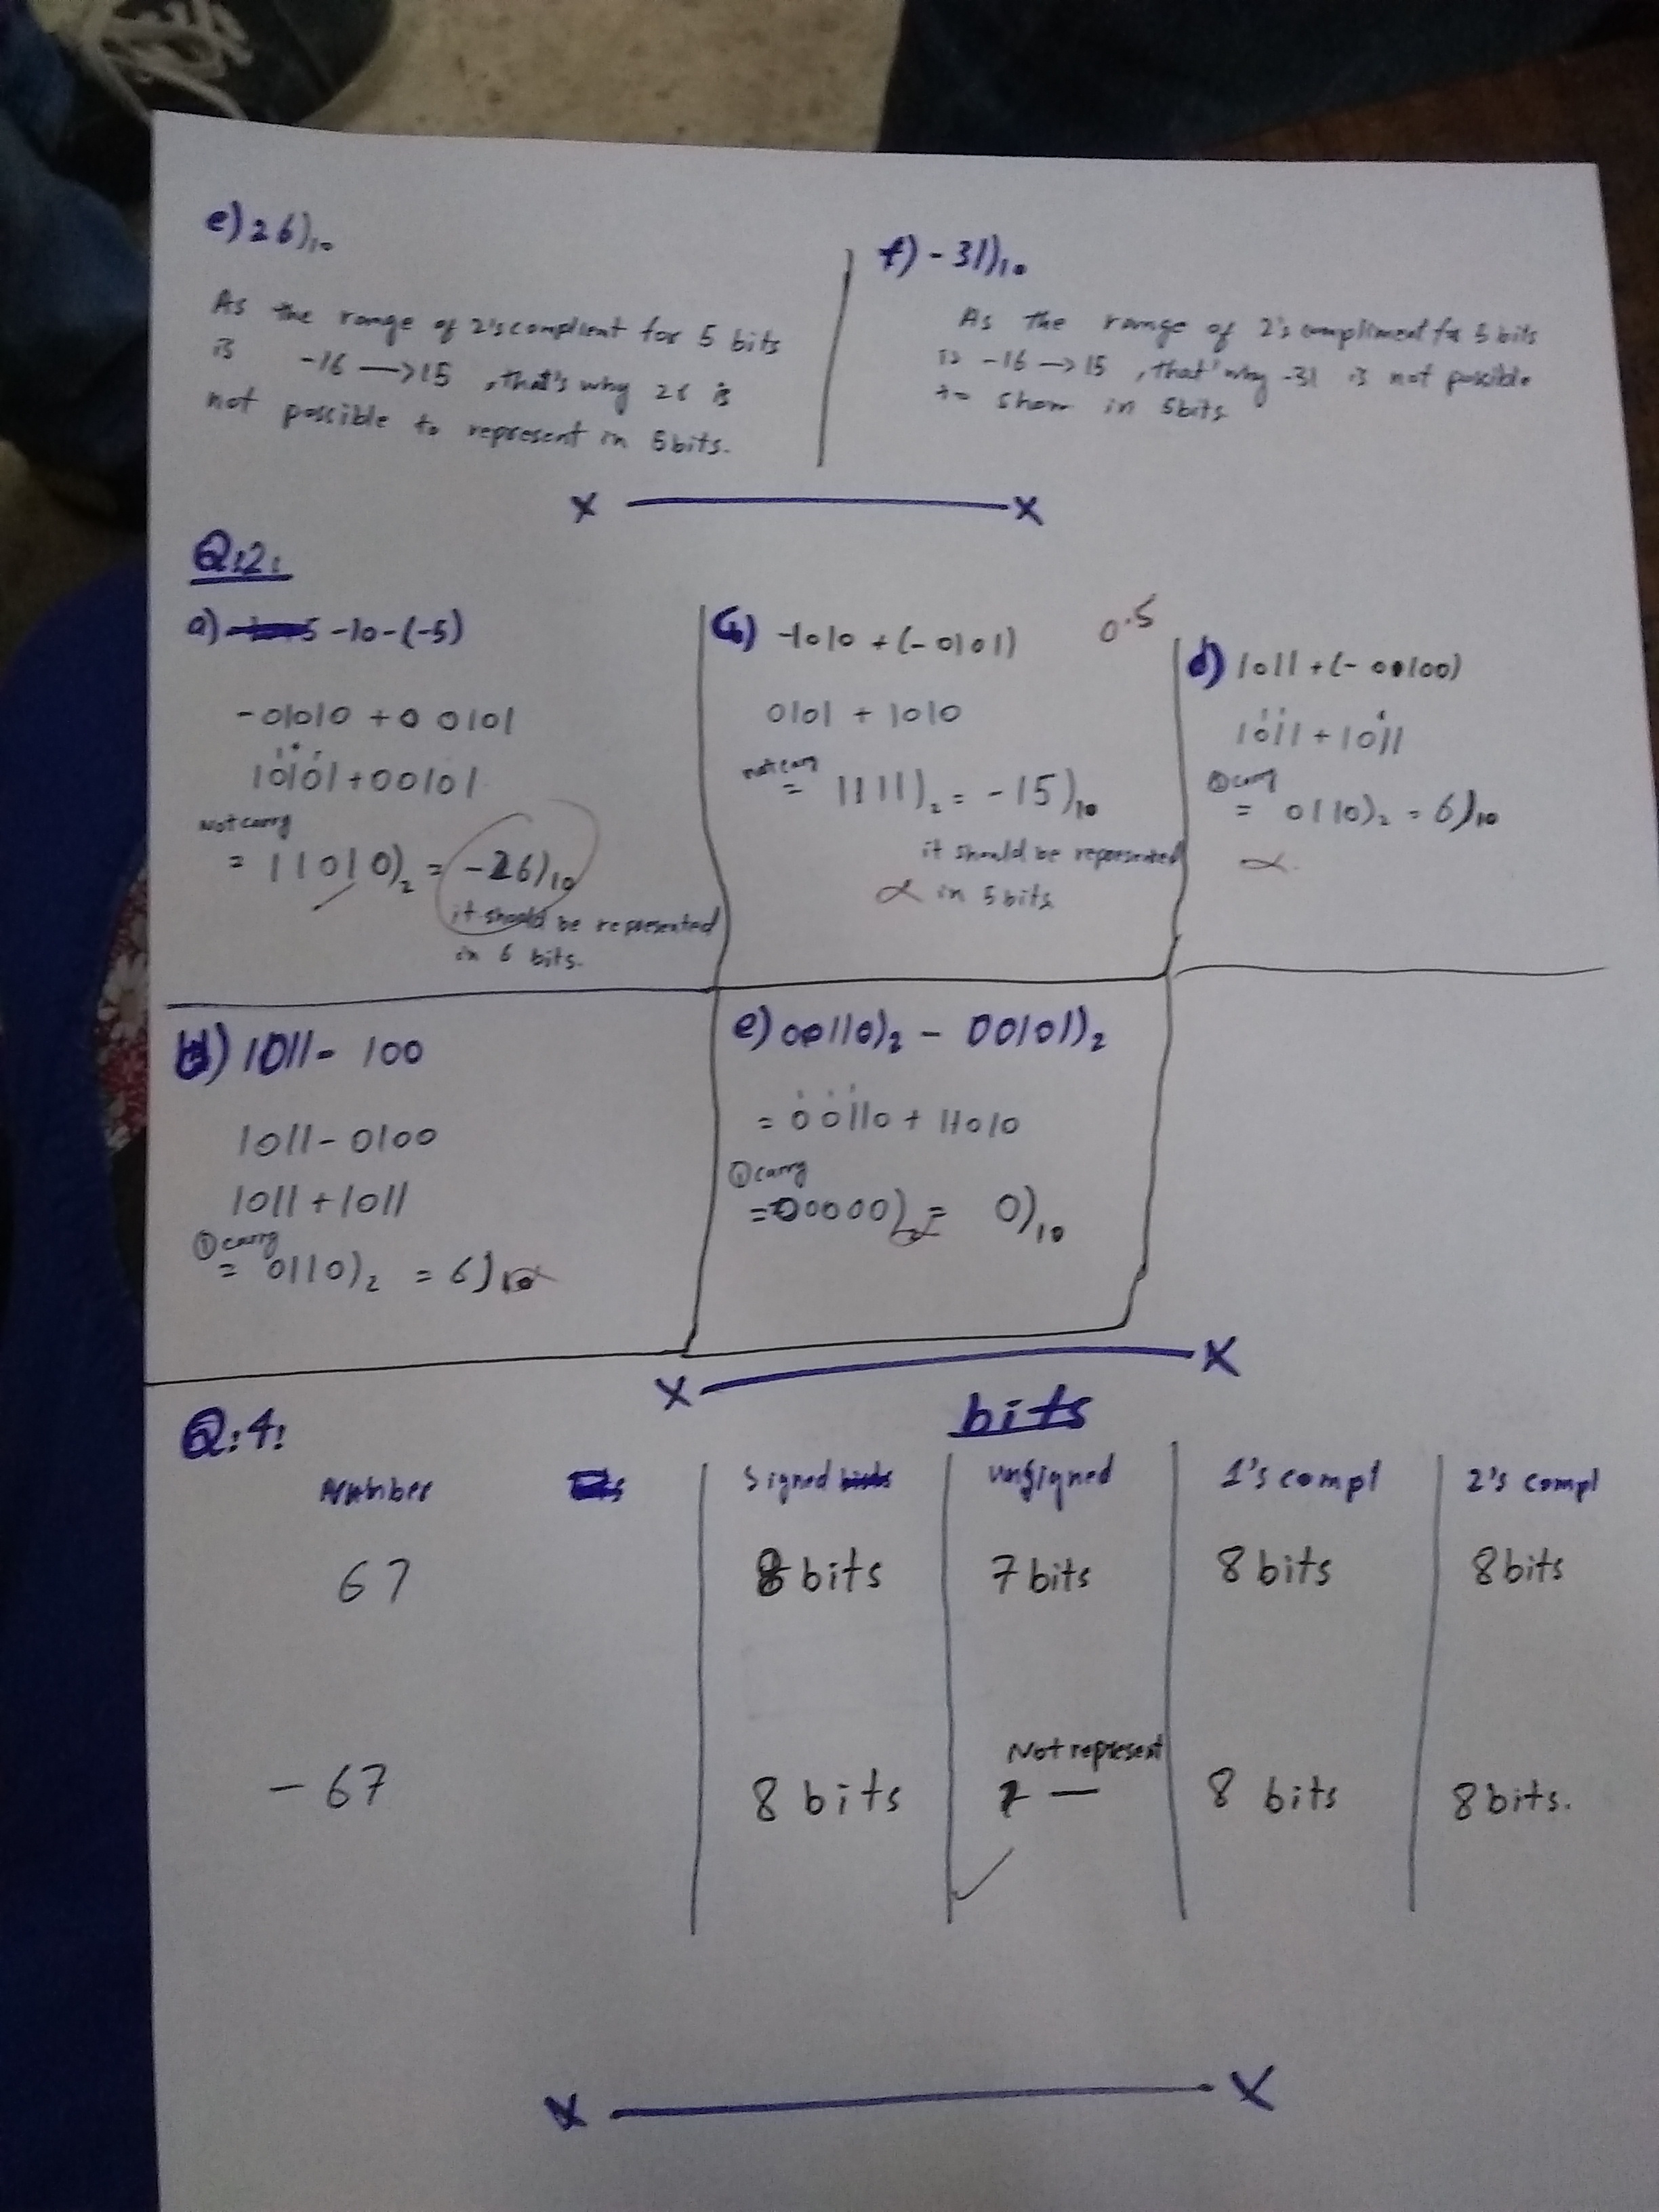 e) 26)10
As the range of 2's complient for 5 bits
is -16 → 15, that's why 26 is
not possible to represent in 5bits.
f) -31)10
As the range of 2's compliment for 5 bits
is -16 → 15, that' why -31 is not possible
to show in 5bits
x x
Q:2:
a) -10-(-5)
-01010 + 0 0101
10101+00101
Not carry
= 11010)2 = -26)10
it should be represented
in 6 bits.
-1010 + (-0101)
0.5
0101 + 1010
not carry
= 1111)2 = -15)10
it should be represented
in 5bits
d) 1011 + (- 00100)
1011 + 1011
① carry
= 0110)2 = 6)10
b) 1011- 100
1011-0100
1011 + 1011
① carry
= 0110)2 = 6)10
e) 00110)2 - 00101)2
= 00110 + 11010
① carry
= 00000)2 = 0)10
x x
Q:4:
bits
Number Signed unsigned 1's compl 2's compl
67 8 bits 7 bits 8 bits 8bits
Not represent
-67 8 bits — 8 bits 8bits.
x x